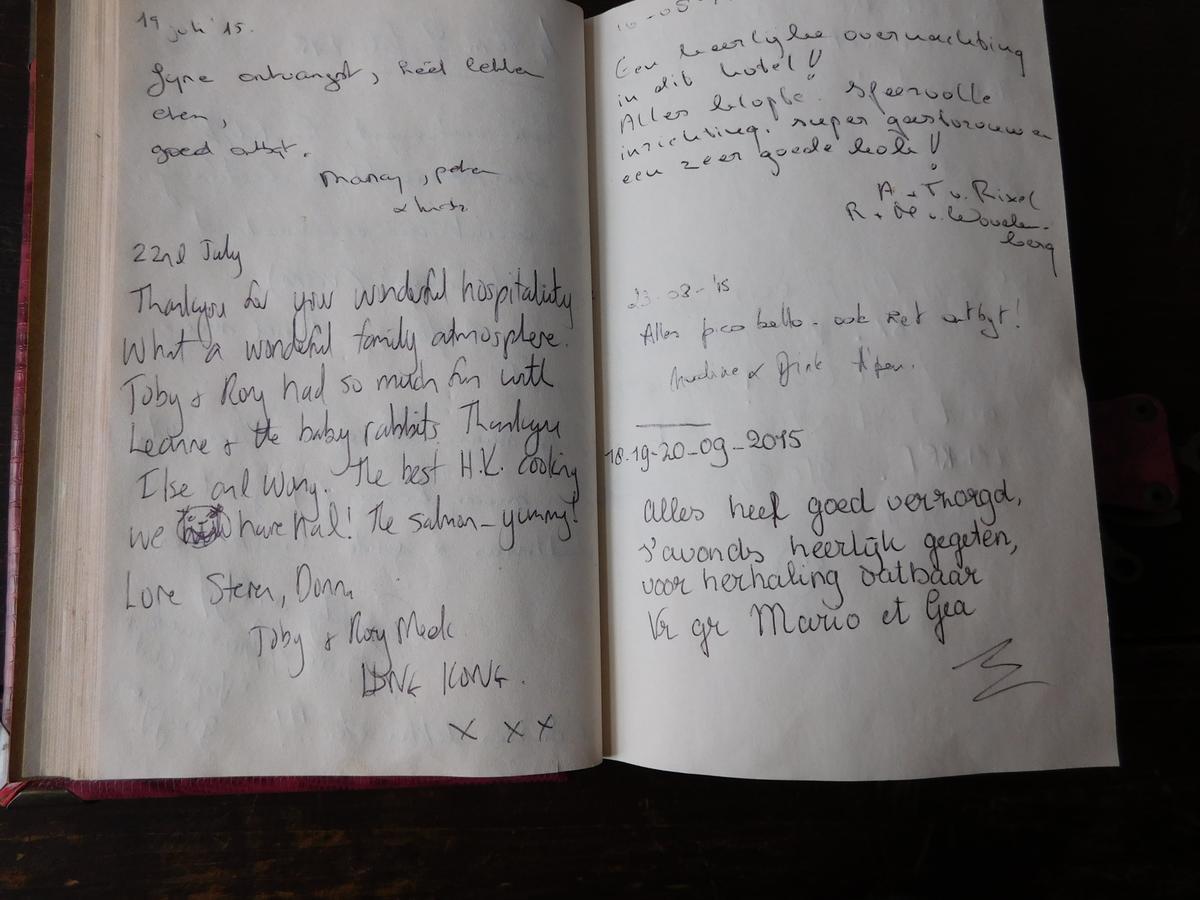 19 juli '15.
fyne ontvangst, heel lekker
eten,
goed ontbyt.
22nd July
Thankyou for your wonderful hospitaliuty
What a wonderful family atmosphere.
Toby & Rory had so much fun with
Leanne & the baby rabbits. Thankyou
Ilse and Wang. The best H.K. cooking
we have had! The salmon - yummy!
Love Steven, Donna
Toby & Rory Meck
HONG KONG.
X X X
Een heerlijke overnachting
in dit hotel!!
Alles klopte. sfeervolle
inrichting, super gastvrouw en
een zeer goede kok!!
A + T v. Rixel
R + M v. Wouden-
berg
23-08-'15
Alles pico bello - ook het ontbyt!
18-19-20-09-2015
alles heel goed verzorgd,
s'avonds heerlijk gegeten,
voor herhaling vatbaar
Vr gr Mario et Gea